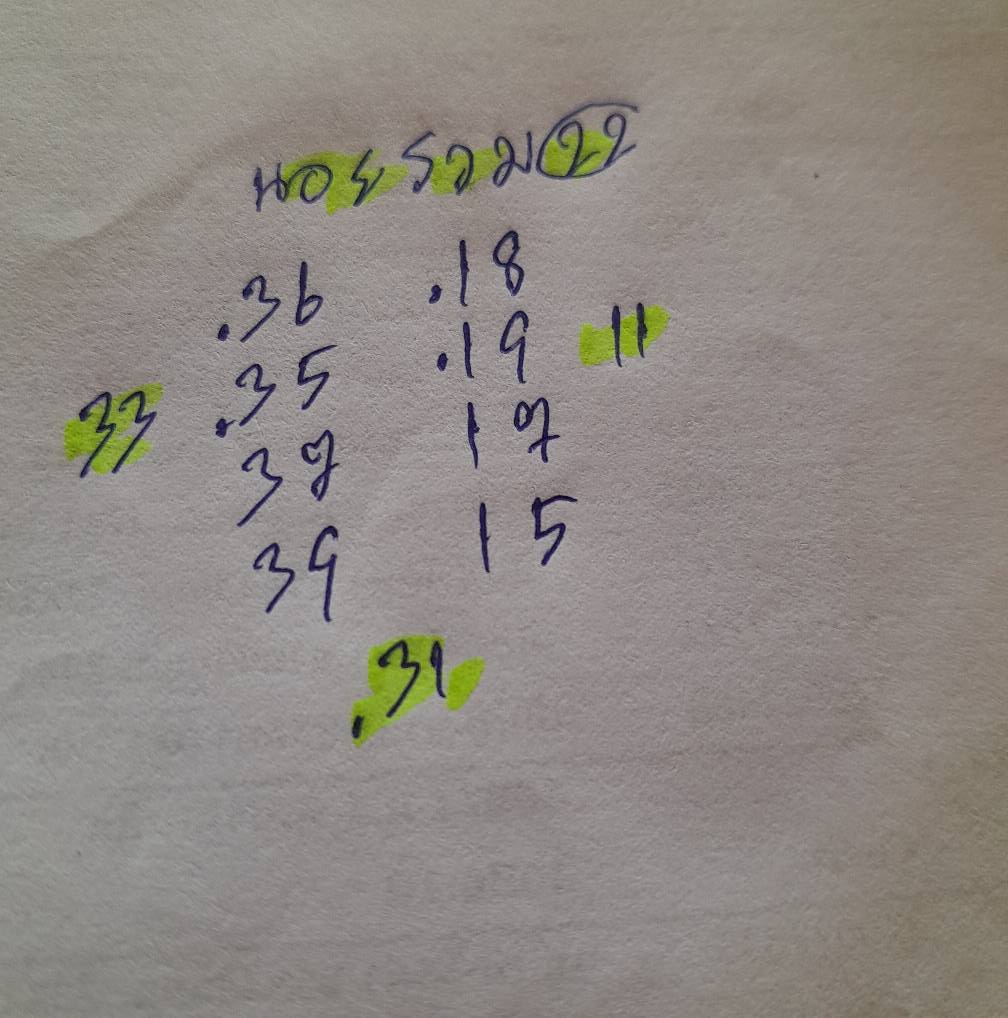 นอย รวม 22
.36 .18
.35 .19 11
33 37 17
39 15
.31